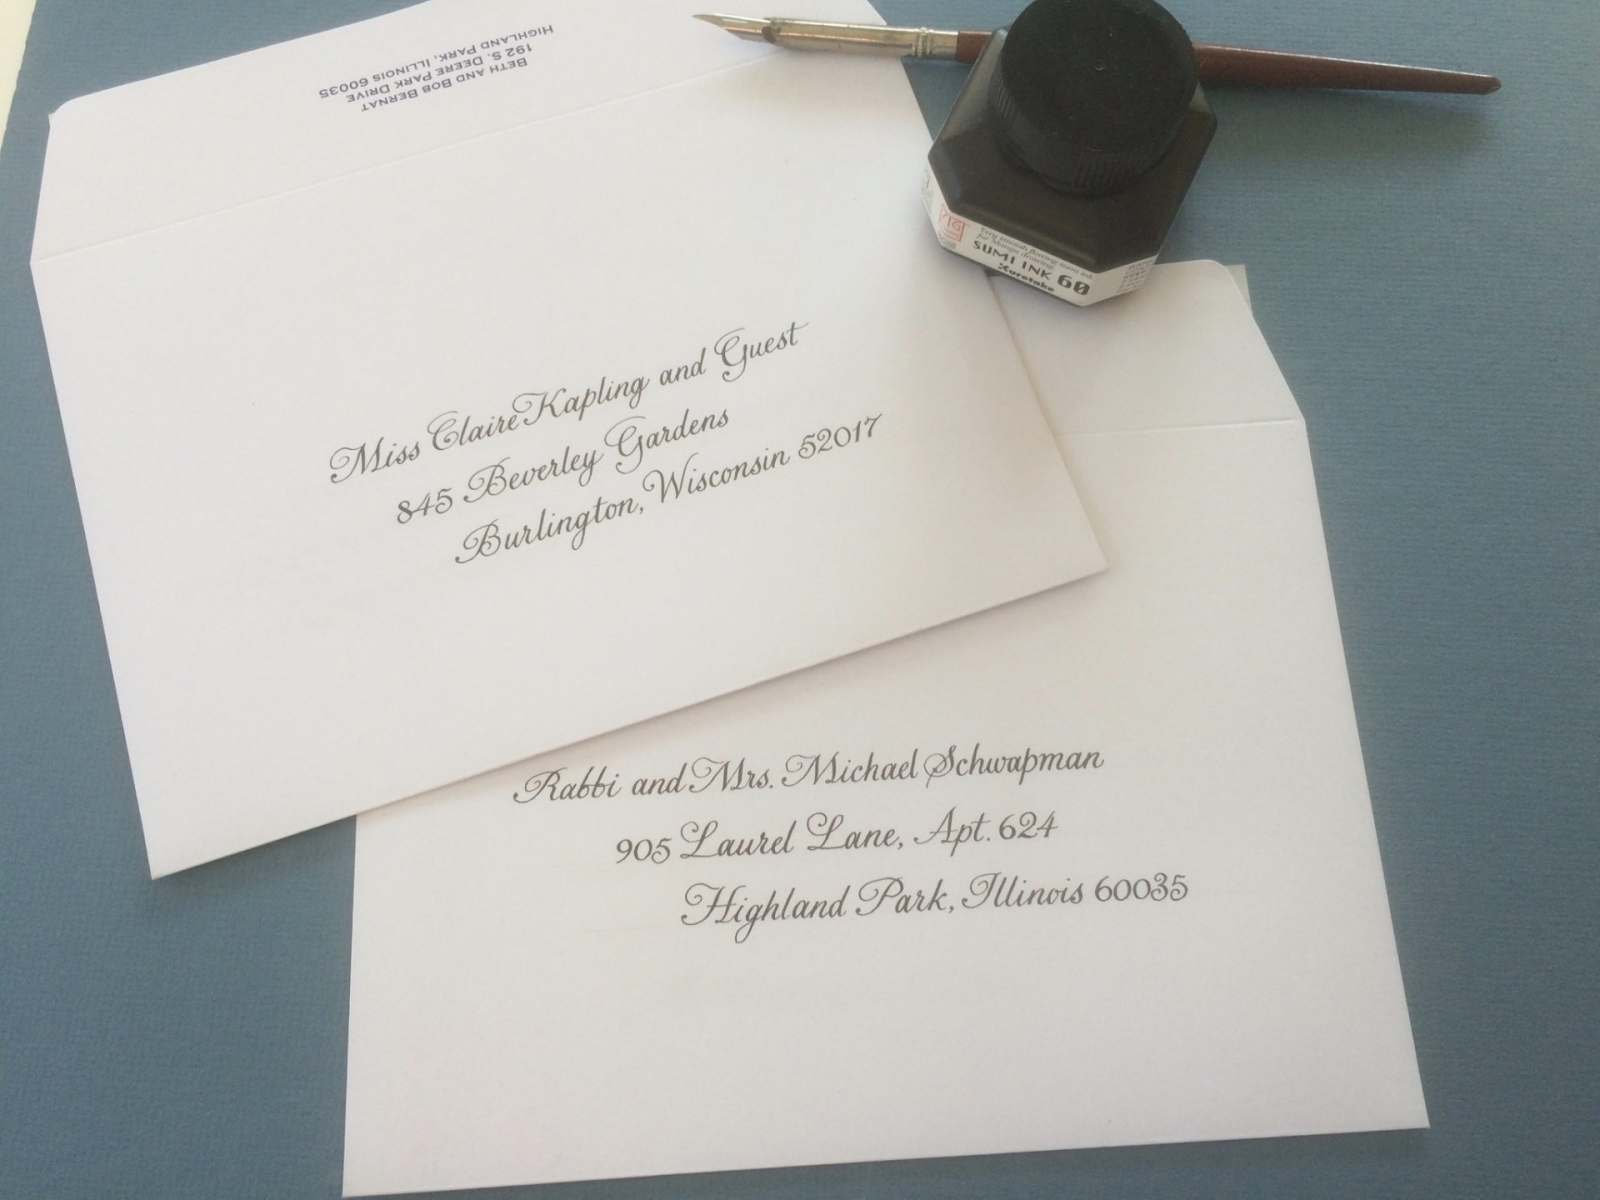 BETH AND BOB BERNAT
192 S. DEERE PARK DRIVE
HIGHLAND PARK, ILLINOIS 60035
Miss Claire Kapling and Guest
845 Beverley Gardens
Burlington, Wisconsin 52017
for Manga drawing
SUMI INK 60
Kuretake
Rabbi and Mrs. Michael Schwapman
905 Laurel Lane, Apt. 624
Highland Park, Illinois 60035